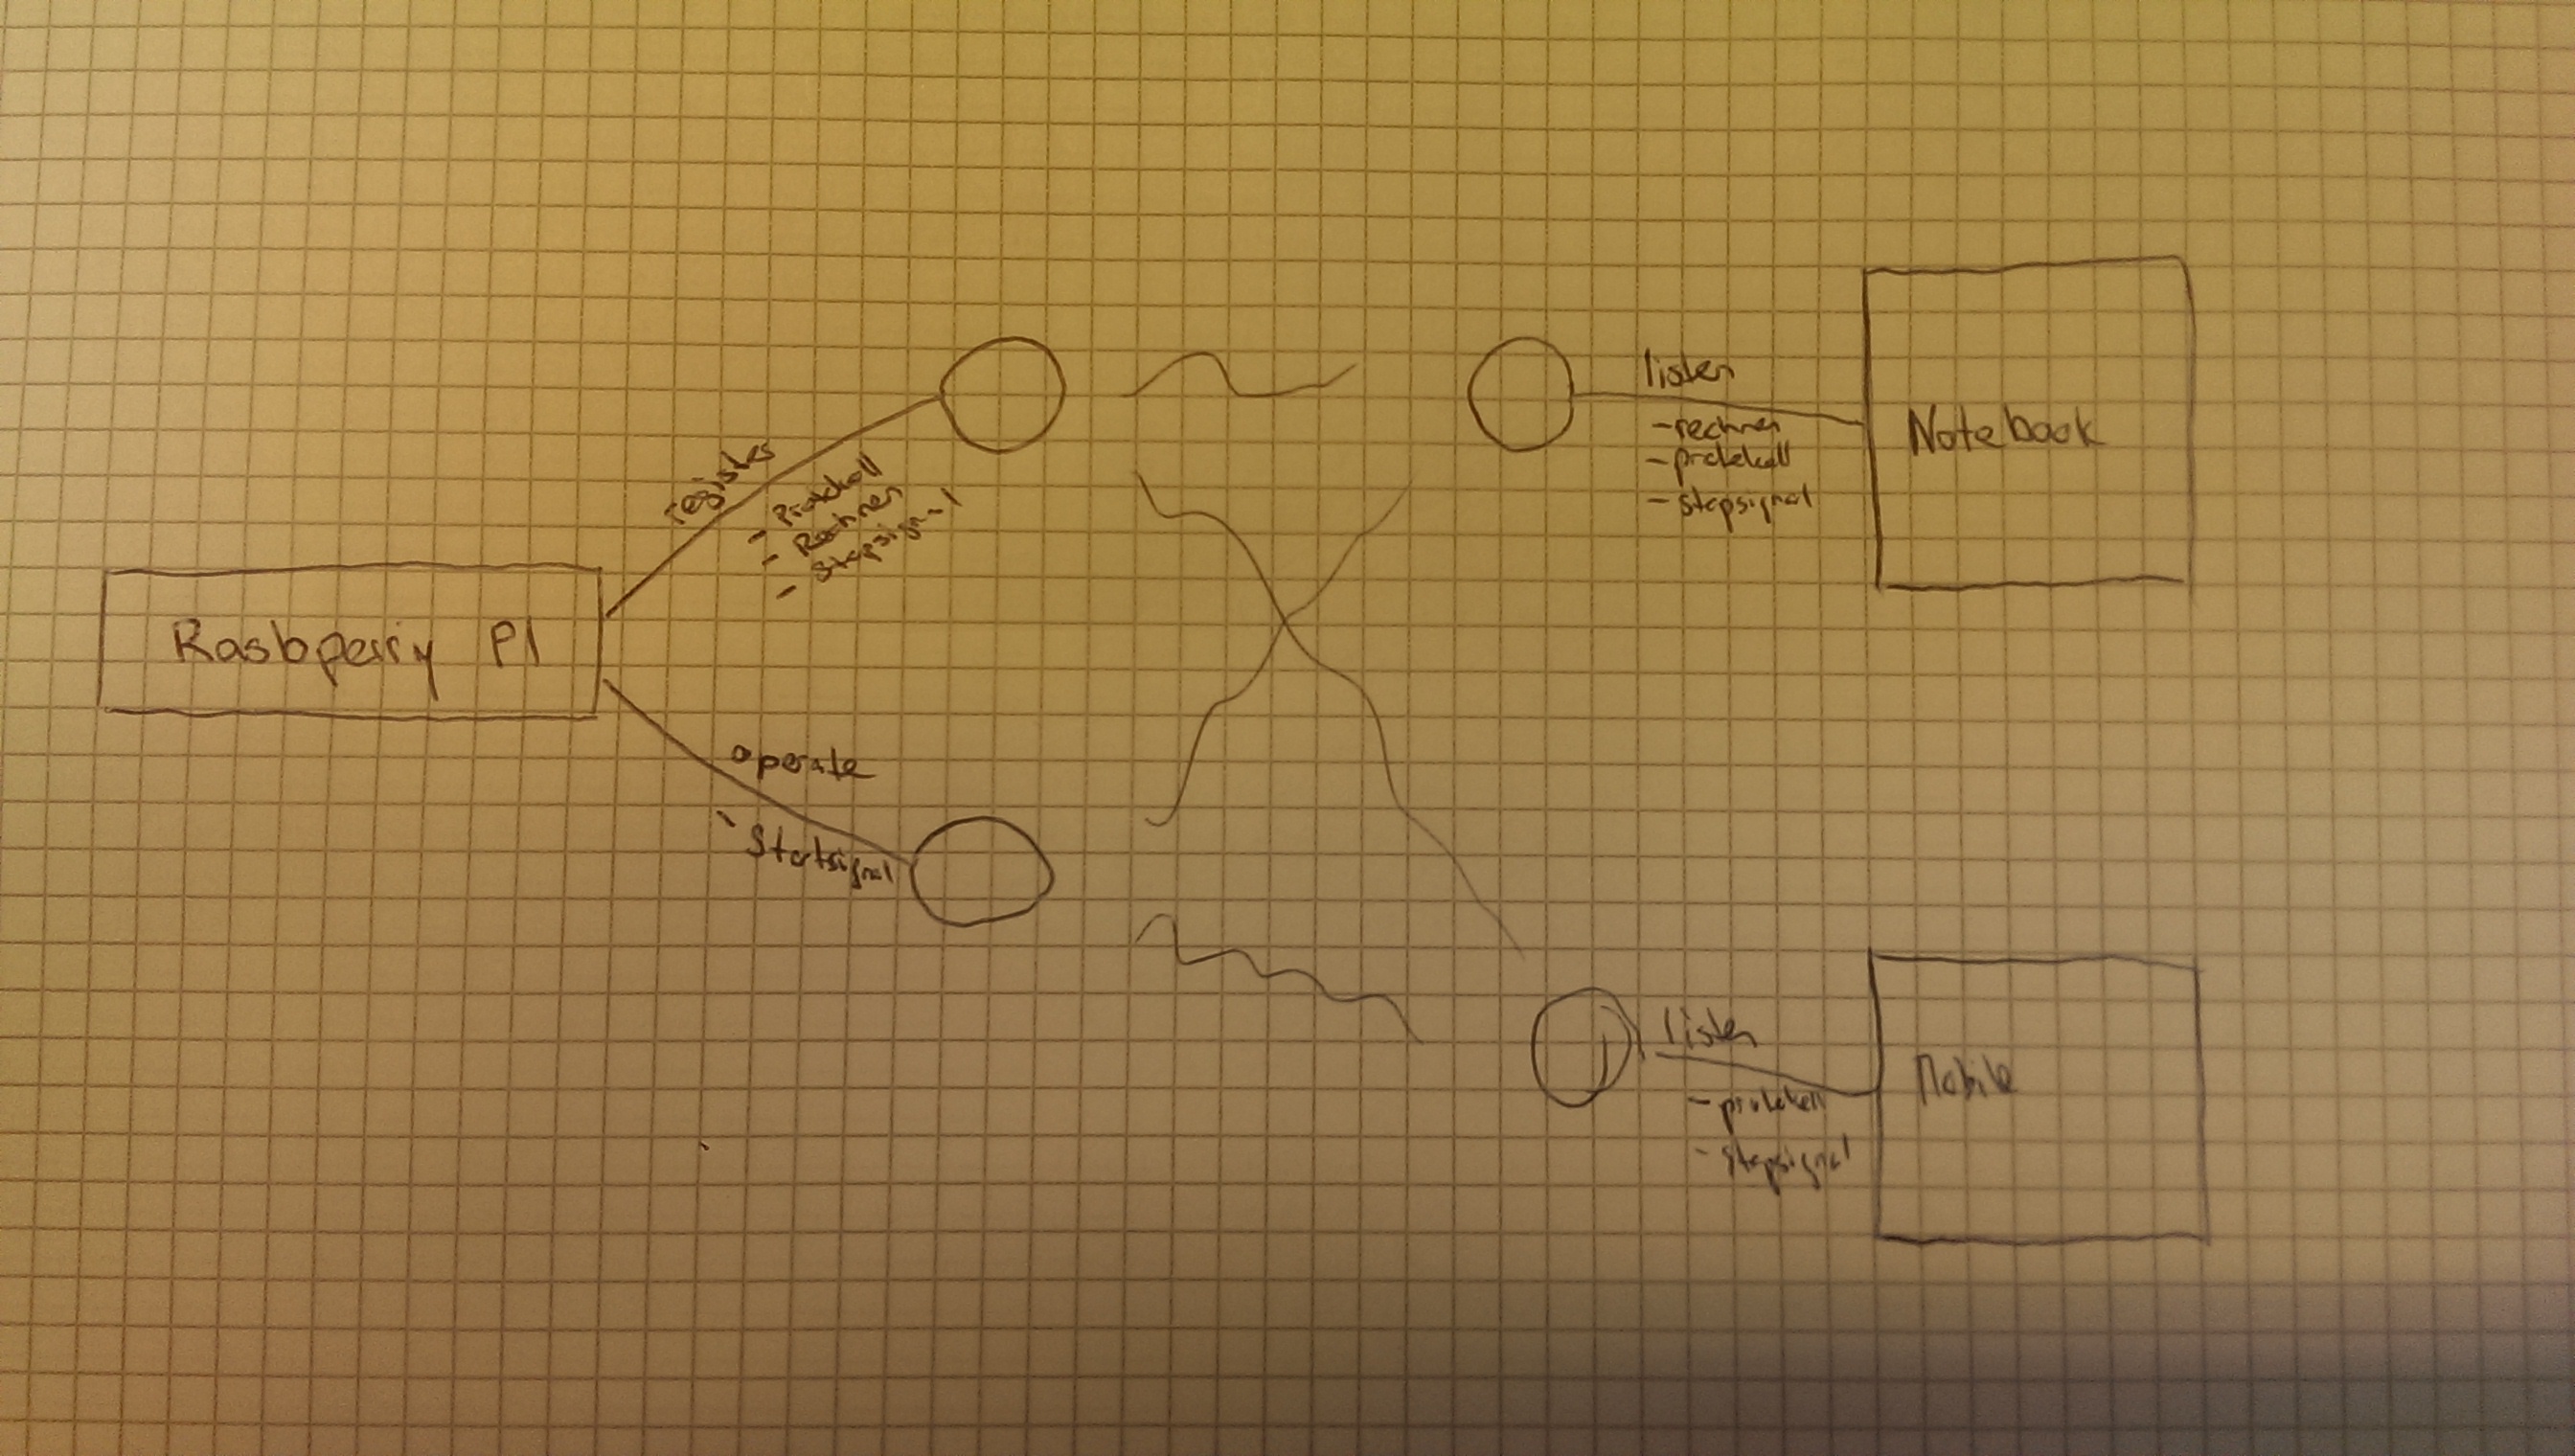 register
- Protokoll
- Rechner
- Stopsignal
Rasbperry PI
operate
- Startsignal
listen
- rechner
- protokoll
- stopsignal
Notebook
listen
- protokoll
- stopsignal
Mobile